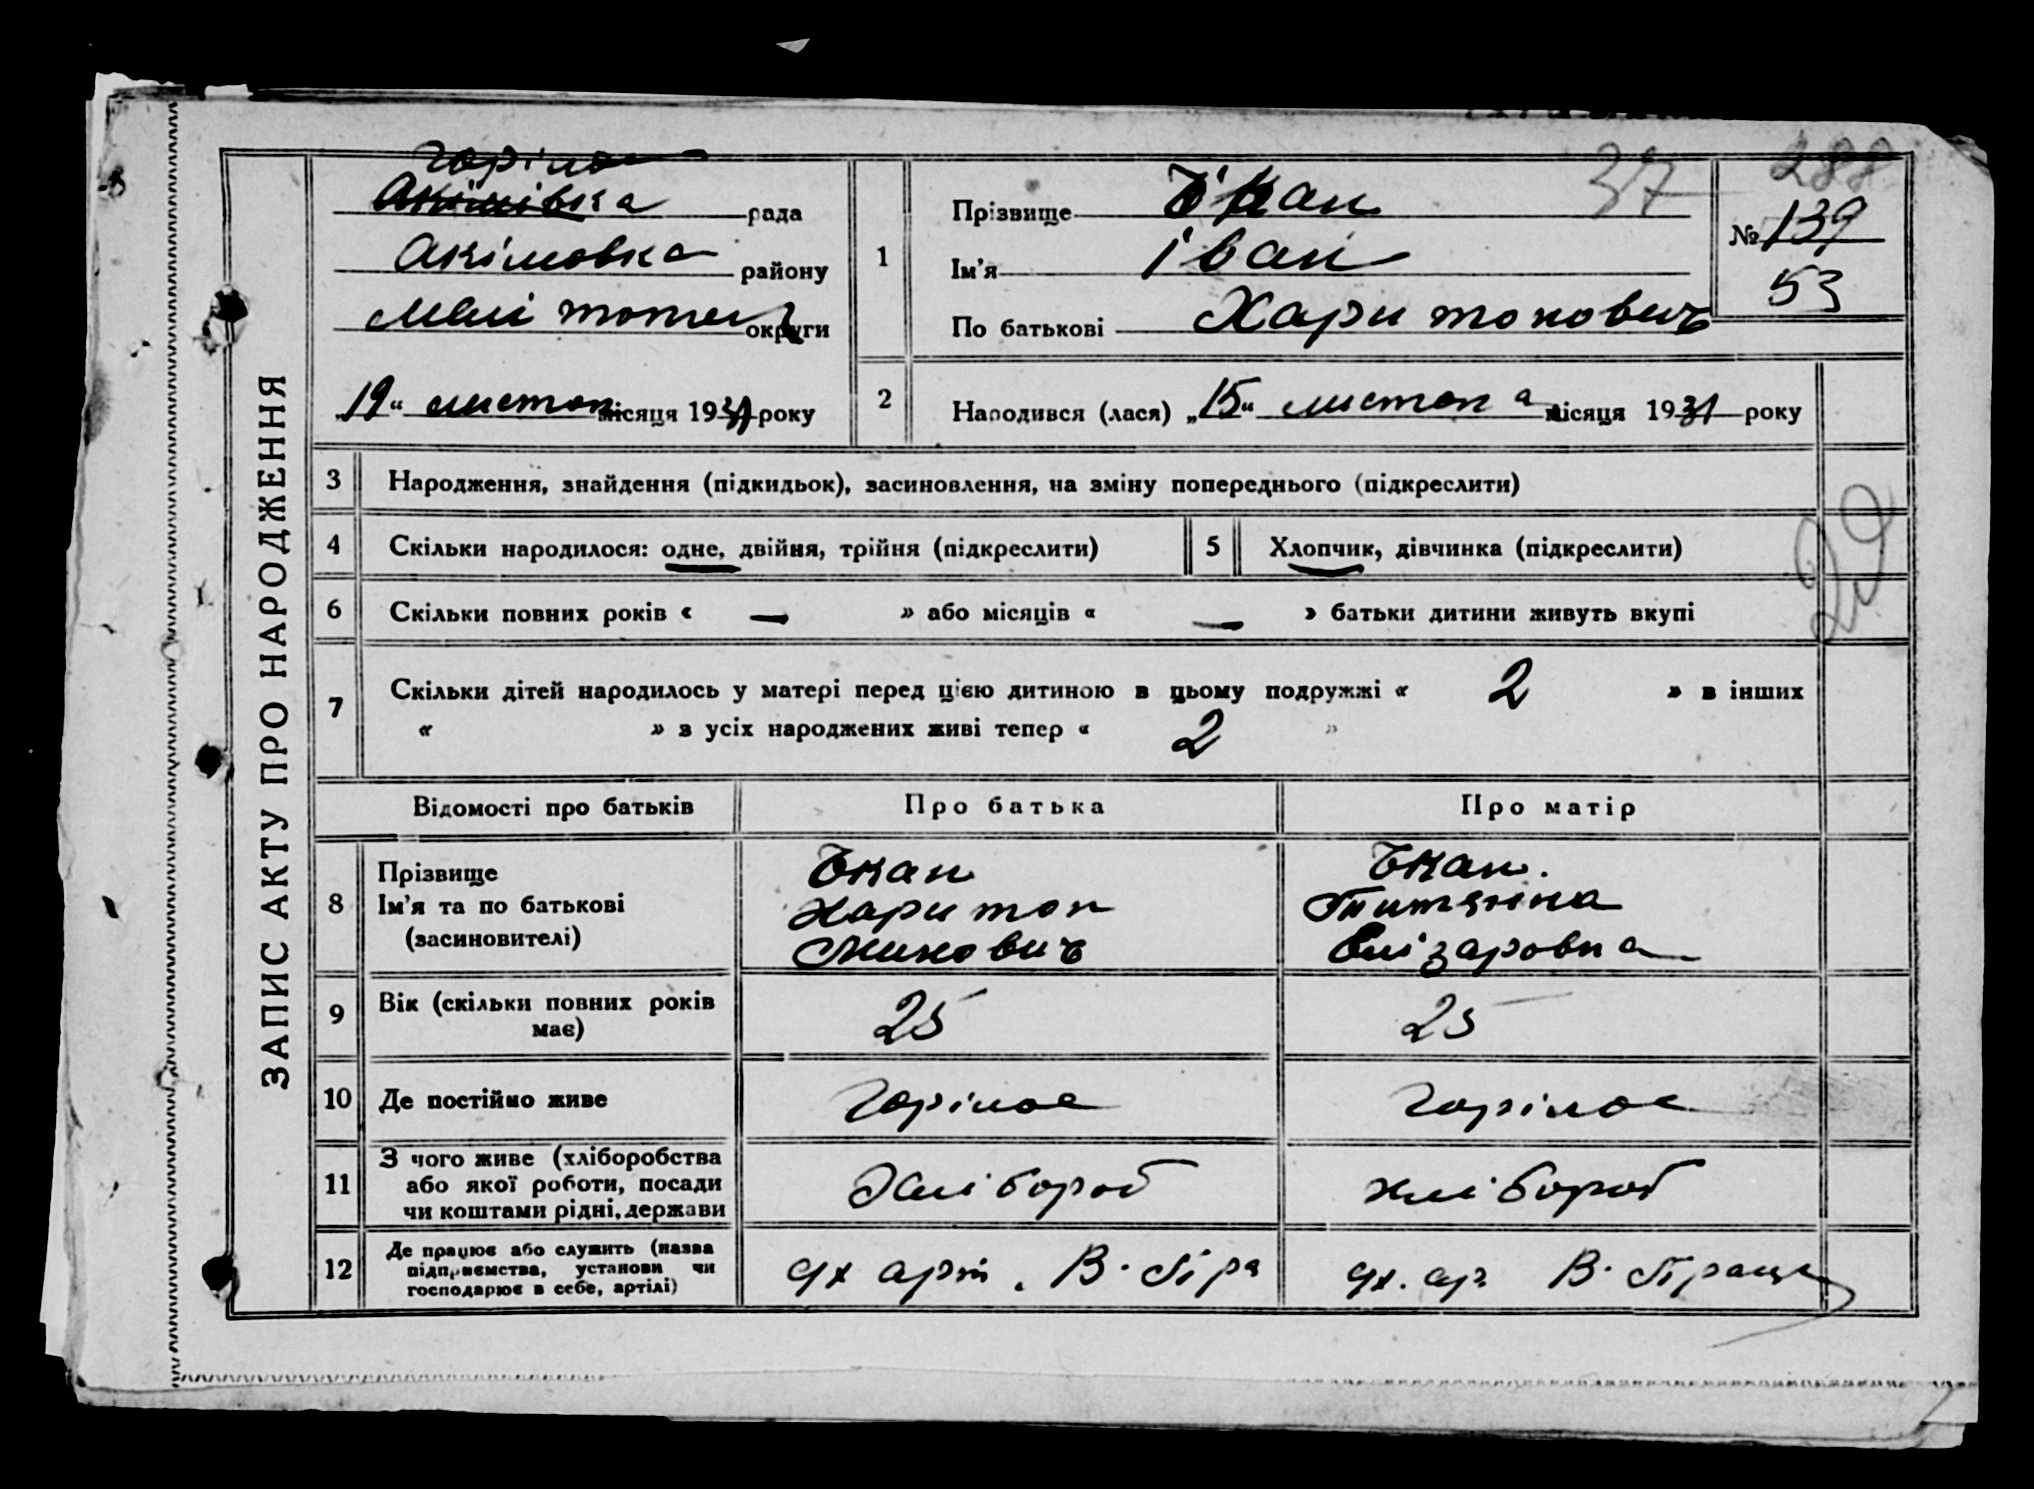 ЗАПИС АКТУ ПРО НАРОДЖЕННЯ
Горілое
Акімівка рада
Акімовка району
Меліто округи
„19“ листоп місяця 1931 року
1
Прізвище
Ім'я Іван
По батькові Харитоновичъ
37
288
№ 139
53
2
Народився (лася) „15“ листопа місяця 1931 року
3 Народження, знайдення (підкидьок), засиновлення, на зміну попереднього (підкреслити)
4 Скільки народилося: одне, двійня, трійня (підкреслити)
5 Хлопчик, дівчинка (підкреслити)
6 Скільки повних років « — » або місяців « — » батьки дитини живуть вкупі
20
7 Скільки дітей народилось у матері перед цією дитиною в цьому подружжі « 2 » в інших
« » з усіх народжених живі тепер « 2 »
Відомості про батьків Про батька Про матір
8 Прізвище
Ім'я та по батькові
(засиновителі)
Харитон
Елізаровна
9 Вік (скільки повних років
має)
25 25
10 Де постійно живе Горілое Горілое
11 З чого живе (хліборобства
або якої роботи, посади
чи коштами рідні, держави
Хлібороб хлібороб
12 Де працює або служить (назва
підприємства, установи чи
господарює в себе, артілі)
арт. В. Пра
ар В. Праця